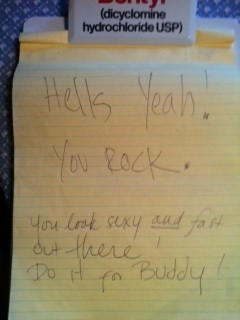 Bentyl
(dicyclomine
hydrochloride USP)
Hells Yeah!
You Rock.
you look sexy and fast
out there!
Do it for Buddy!